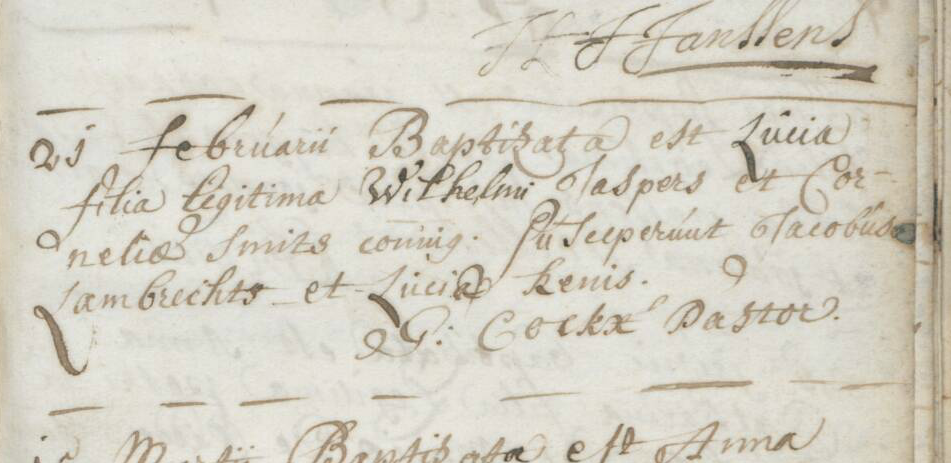 Janssens
21 februarii Baptizata est Lucia
filia legitima Wilhelmi Jaspers et Cor-
neliæ Smits coniug. Susceperunt Jacobus
Lambrechts et Lucia kenis.
G: Cockx Pastor.
Martij Baptizata est Anna